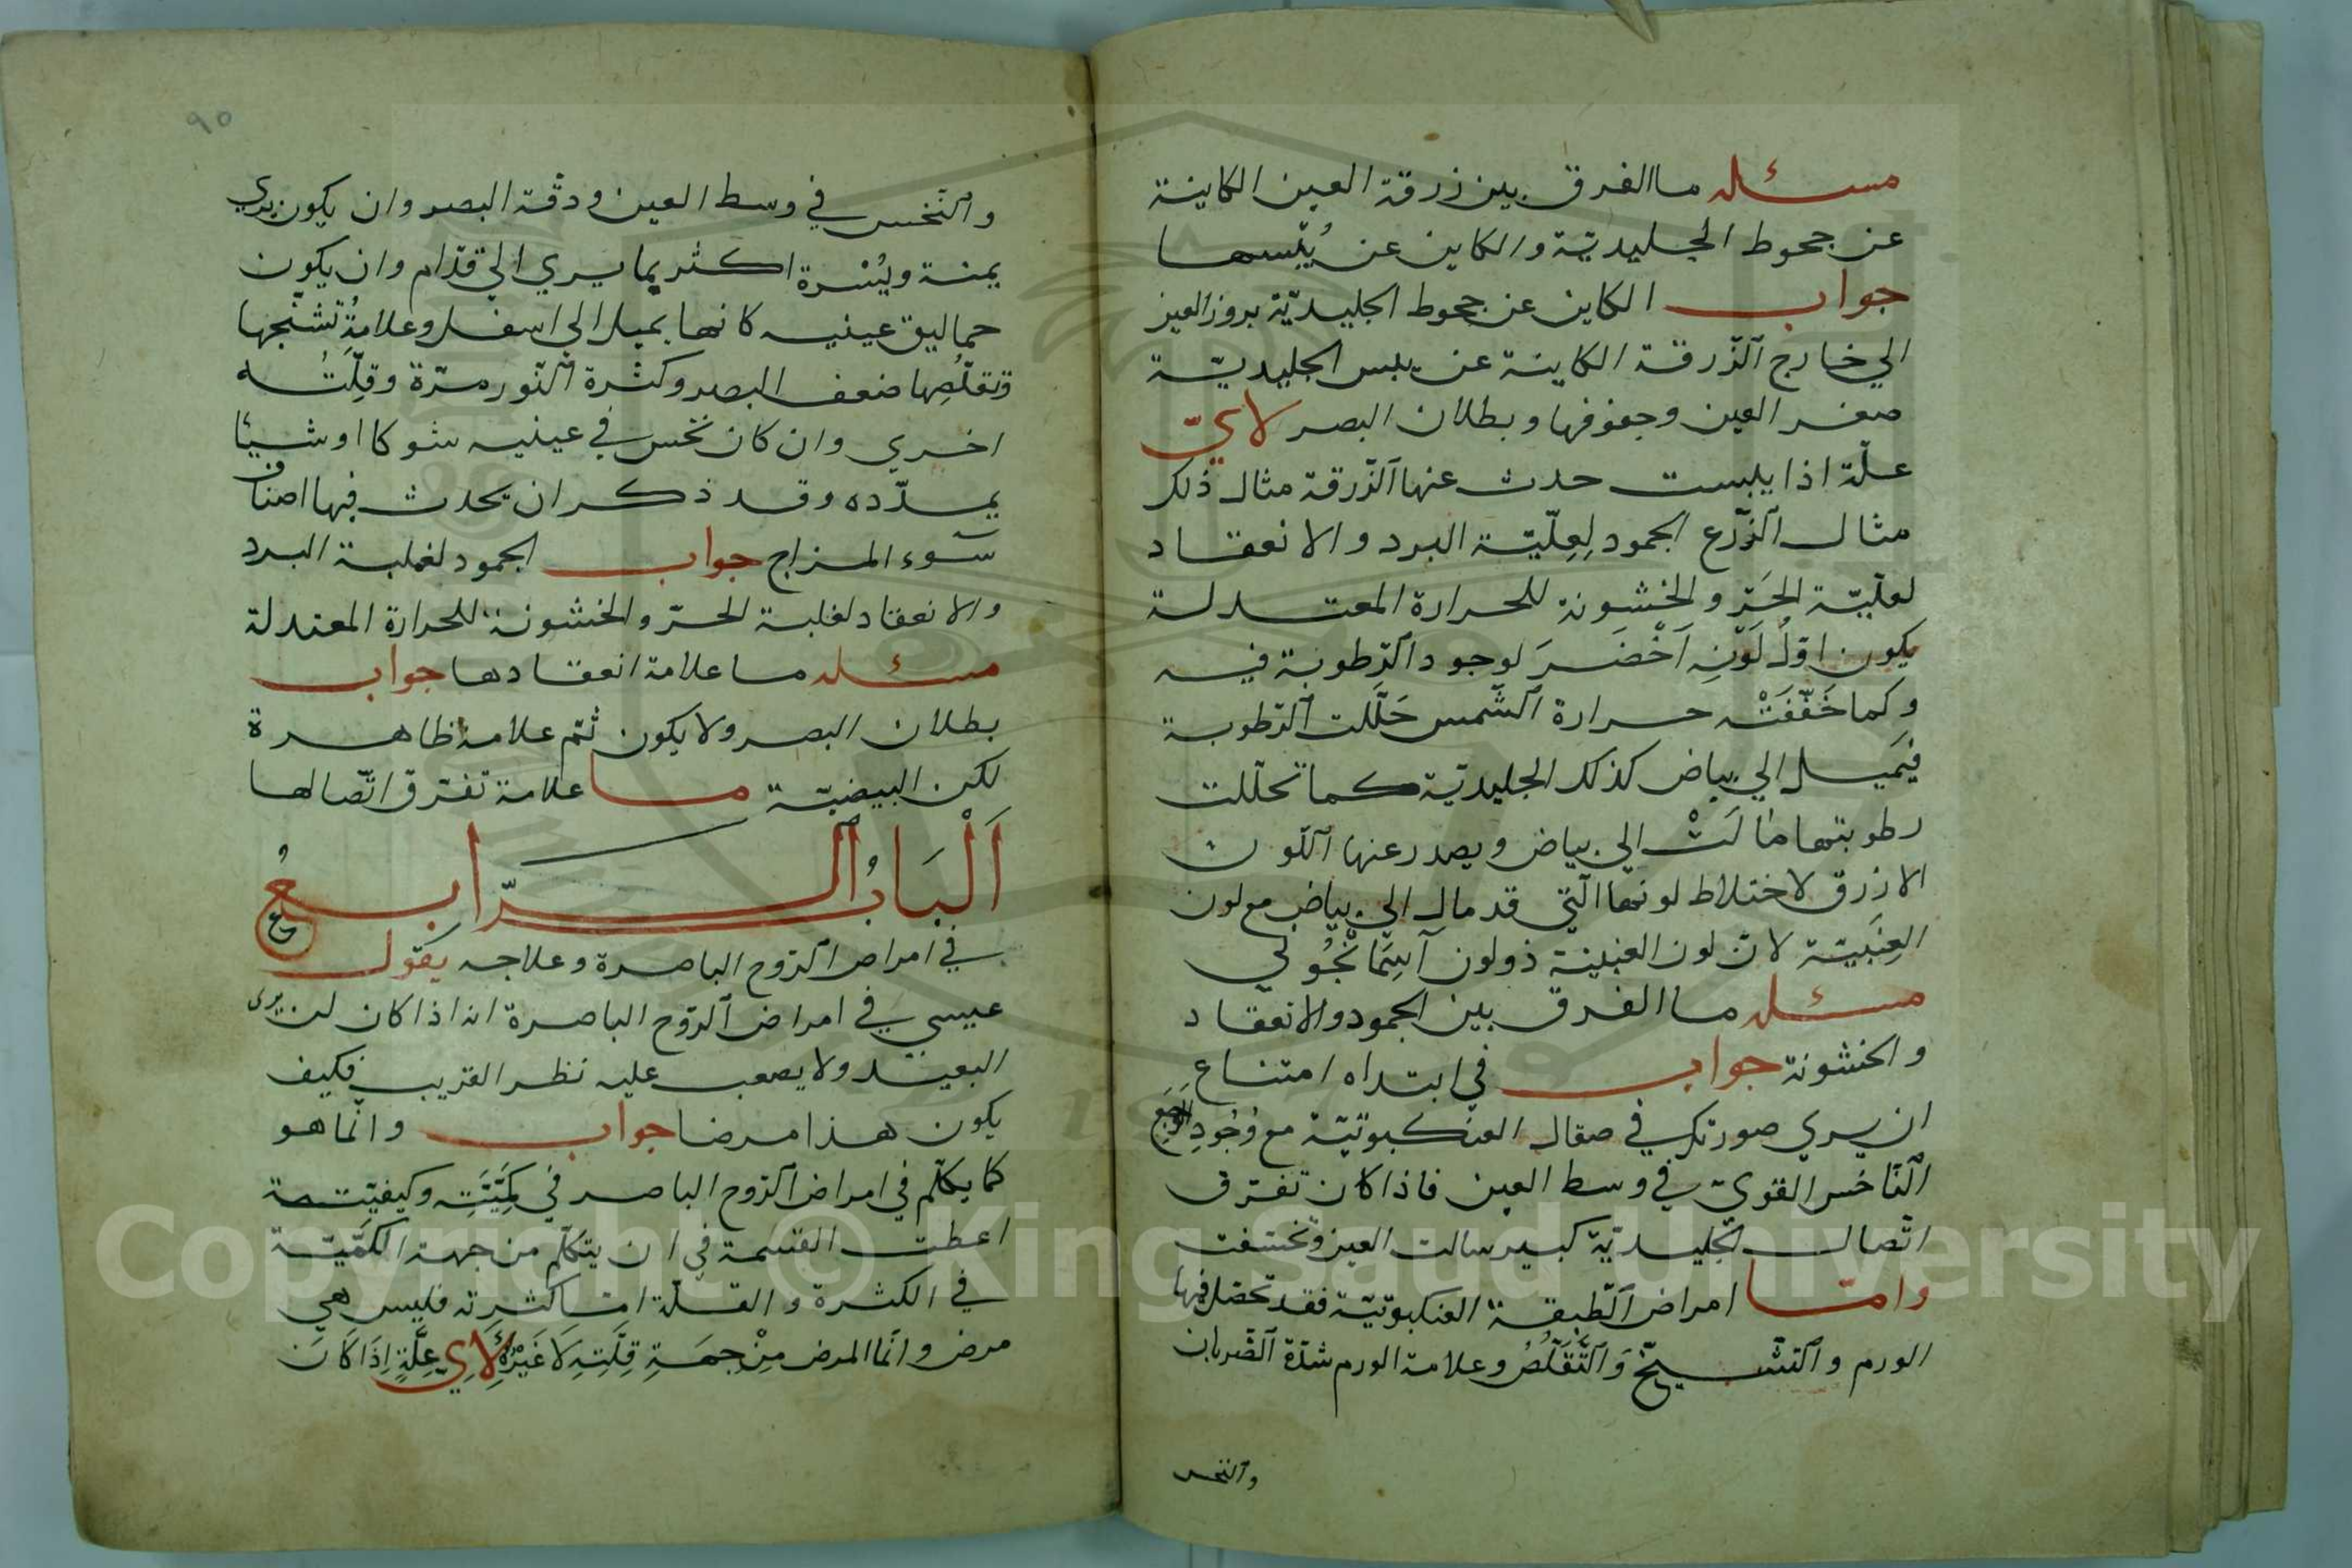 مسئله ما الفرق بين زرقة العين الكاينة
عن جحوط الجليديّة والكاين عن يُبْسها
جواب الكاين عن جحوط الجليديّة بروز العين
الي خارج الزّرقة الكاينة عن يبس الجليديّة
صغر العين وجفوفها وبطلان البصر لايّ
علّة اذا يبست حدث عنها الزّرقة مثال ذلك
مثال الزّرع الجمود لِعِلّيّة البرد والانعقاد
لعلّيّة الحَرّ والخشونة للحرارة المعتدلة
يكون اوّلُ لَوْنِه اَخْضَرَ لوجود الرّطوبة فيه
وكما خَفّفَتْه حرارة الشّمس حَلّلت الرّطوبة
فيَميل الي بياض كذلك الجليديّة كما تحلّلت
رطوبتها مالَتْ الي بياض ويصدر عنها اللّون
الازرق لاختلاط لونها الّتي قد مال الي بياض مع لون
العِنَبيّة لانّ لون العنبية ذو لون آسِمَانْجُوني
مسئله ما الفرق بين الجمود والانعقاد
والخشونة جواب في ابتداه امتناع
ان يري صورتك في صقال العنكبوتيّة مع وُجُودِ الوَجَعِ
النّاخس القويّ في وسط العين فاذا كان تفرّق
اتّصال الجليديّة كبير سالت العين وتخسّفت
وامّا امراض الطّبقة العنكبوتيّة فقد تحصل فيها
الورم والتشيخّ وَالتَّقَلُّصُ وعلامة الورم شدّة الضّربان
والنخس
٩٥
والنّخس في وسط العين ودقّة البصر وان يكون يري
يمنة ويُسْرة اكثر بما يري الي قدّام وان يكون
حماليق عينيه كانها يميل الي اسفل وعلامةُ تشنّجها
وتقلّصِها ضعف البصر وكثرة النّور مرّة وقِلّتُه
اخري وان كان نخس في عينيه شوكا او شيئا
يمدّده وقد ذكر ان يحدث فيها اصناف
سوء المزاج جواب الجمود لغلبة البرد
والانعقاد لغلبة الحرّ والخشونة للحرارة المعتدلة
مسئله ما علامة انعقادها جواب
بطلان البصر ولا يكون ثمّ علامة ظاهرة
لكن البيضيّة ما علامة تفرّق اتّصالها
اَلْبَابُ الرّابعُ
في امراض الرّوح الباصرة وعلاجه يقول
عيسي في امراض الرّوح الباصرة انه اذا كان لمن يرى
البعيد ولا يصعب عليه نظر القريب فكيف
يكون هذا مرضا جواب وانّما هو
كما يكلّم في امراض الرّوح الباصر في كَمِّيَّتِه وكيفيّته
اعطت القسمة في ان يتكلّم من جهة الكمّيّة
في الكثرة والقلّة امّا كثرته فليس هي
مرض وانّما المرض مِنْ جِهَةِ قِلَّتِهِ لَا غَيْرُ لِاَيِّ عِلَّةٍ اِذَا كَانَ
Copyright © King Saud University